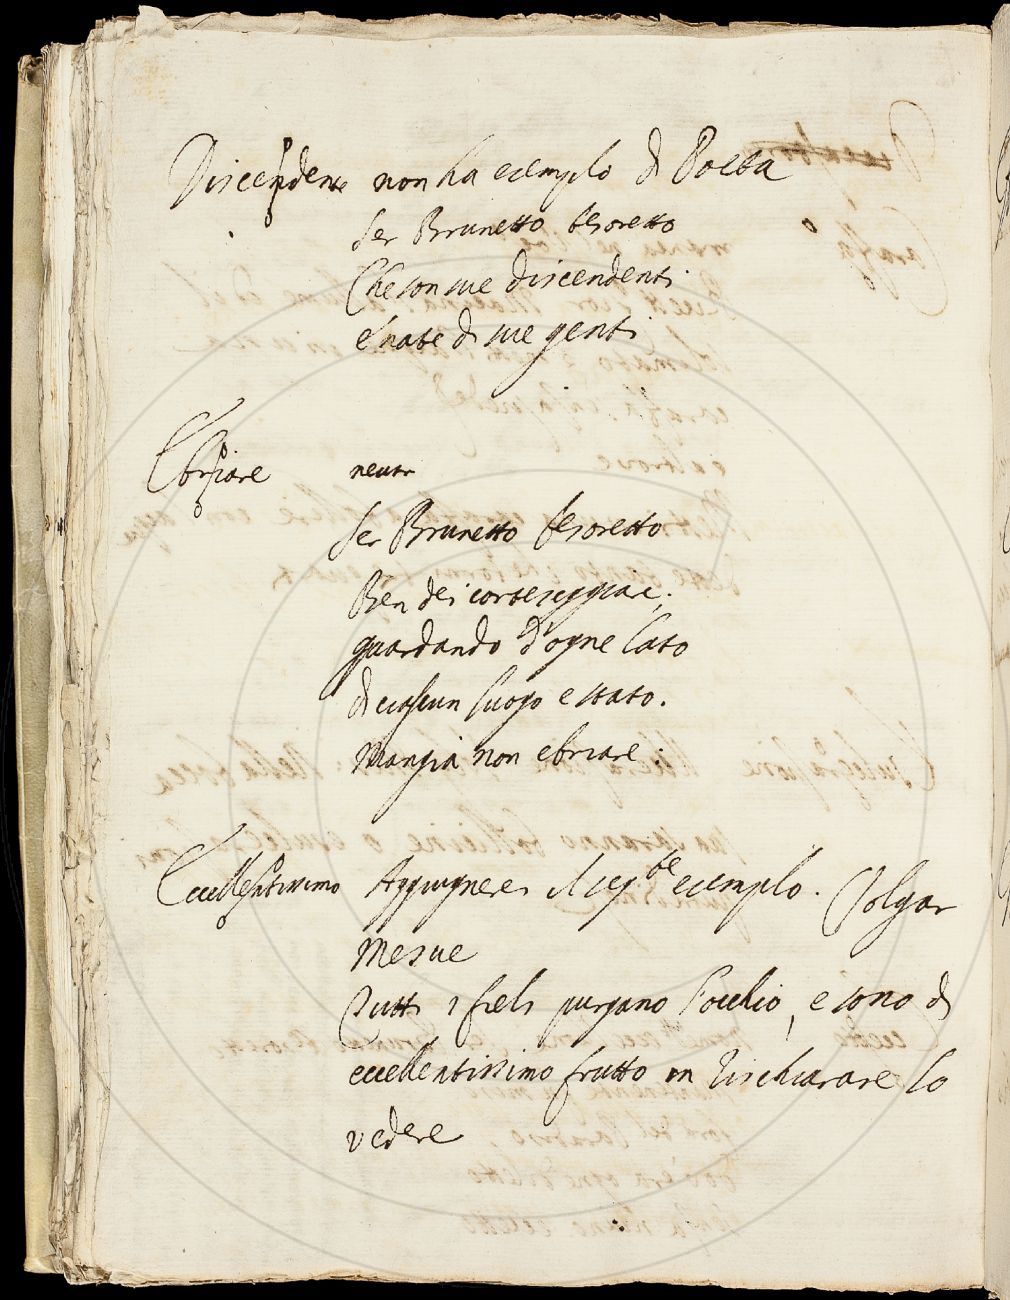 Discendente non ha esemplo di Poeta
Ser Brunetto tesoretto
Che son sue discendenti
E nate di sue genti
Ebriare neutr
Ser Brunetto tesoretto
Ben dei corteseggiare;
guardando d'ogne lato
di ciascun luogo e stato.
Mangia non ebriare:
Eccellentissimo Aggiugnere il seg.te esemplo. Volgar
Mesue
Tutti i fieli purgano l'occhio, e sono di
eccellentissimo frutto in rischiarare lo
vedere